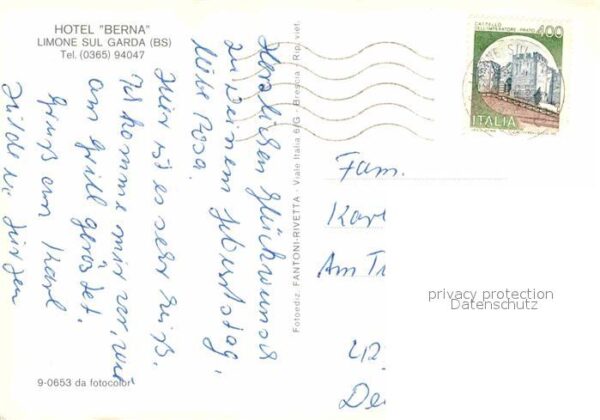 HOTEL "BERNA"
LIMONE SUL GARDA (BS)
Tel. (0365) 94047
Herzlichen Glückwunsch
zu Deinem Geburtstag,
liebe Rosa.
Hier ist es sehr heiß.
Ich komme mir vor, wie
am Grill geröstet.
Gruß an Karl
Hilde u. Jürgen
9-0653 da fotocolor
Fotoediz. FANTONI-RIVETTA - Viale Italia 6/G - Brescia - Rip. viet.
CASTELLO
DELL'IMPERATORE PRATO
400
ITALIA
Fam.
Karl
Am
42
privacy protection
Datenschutz